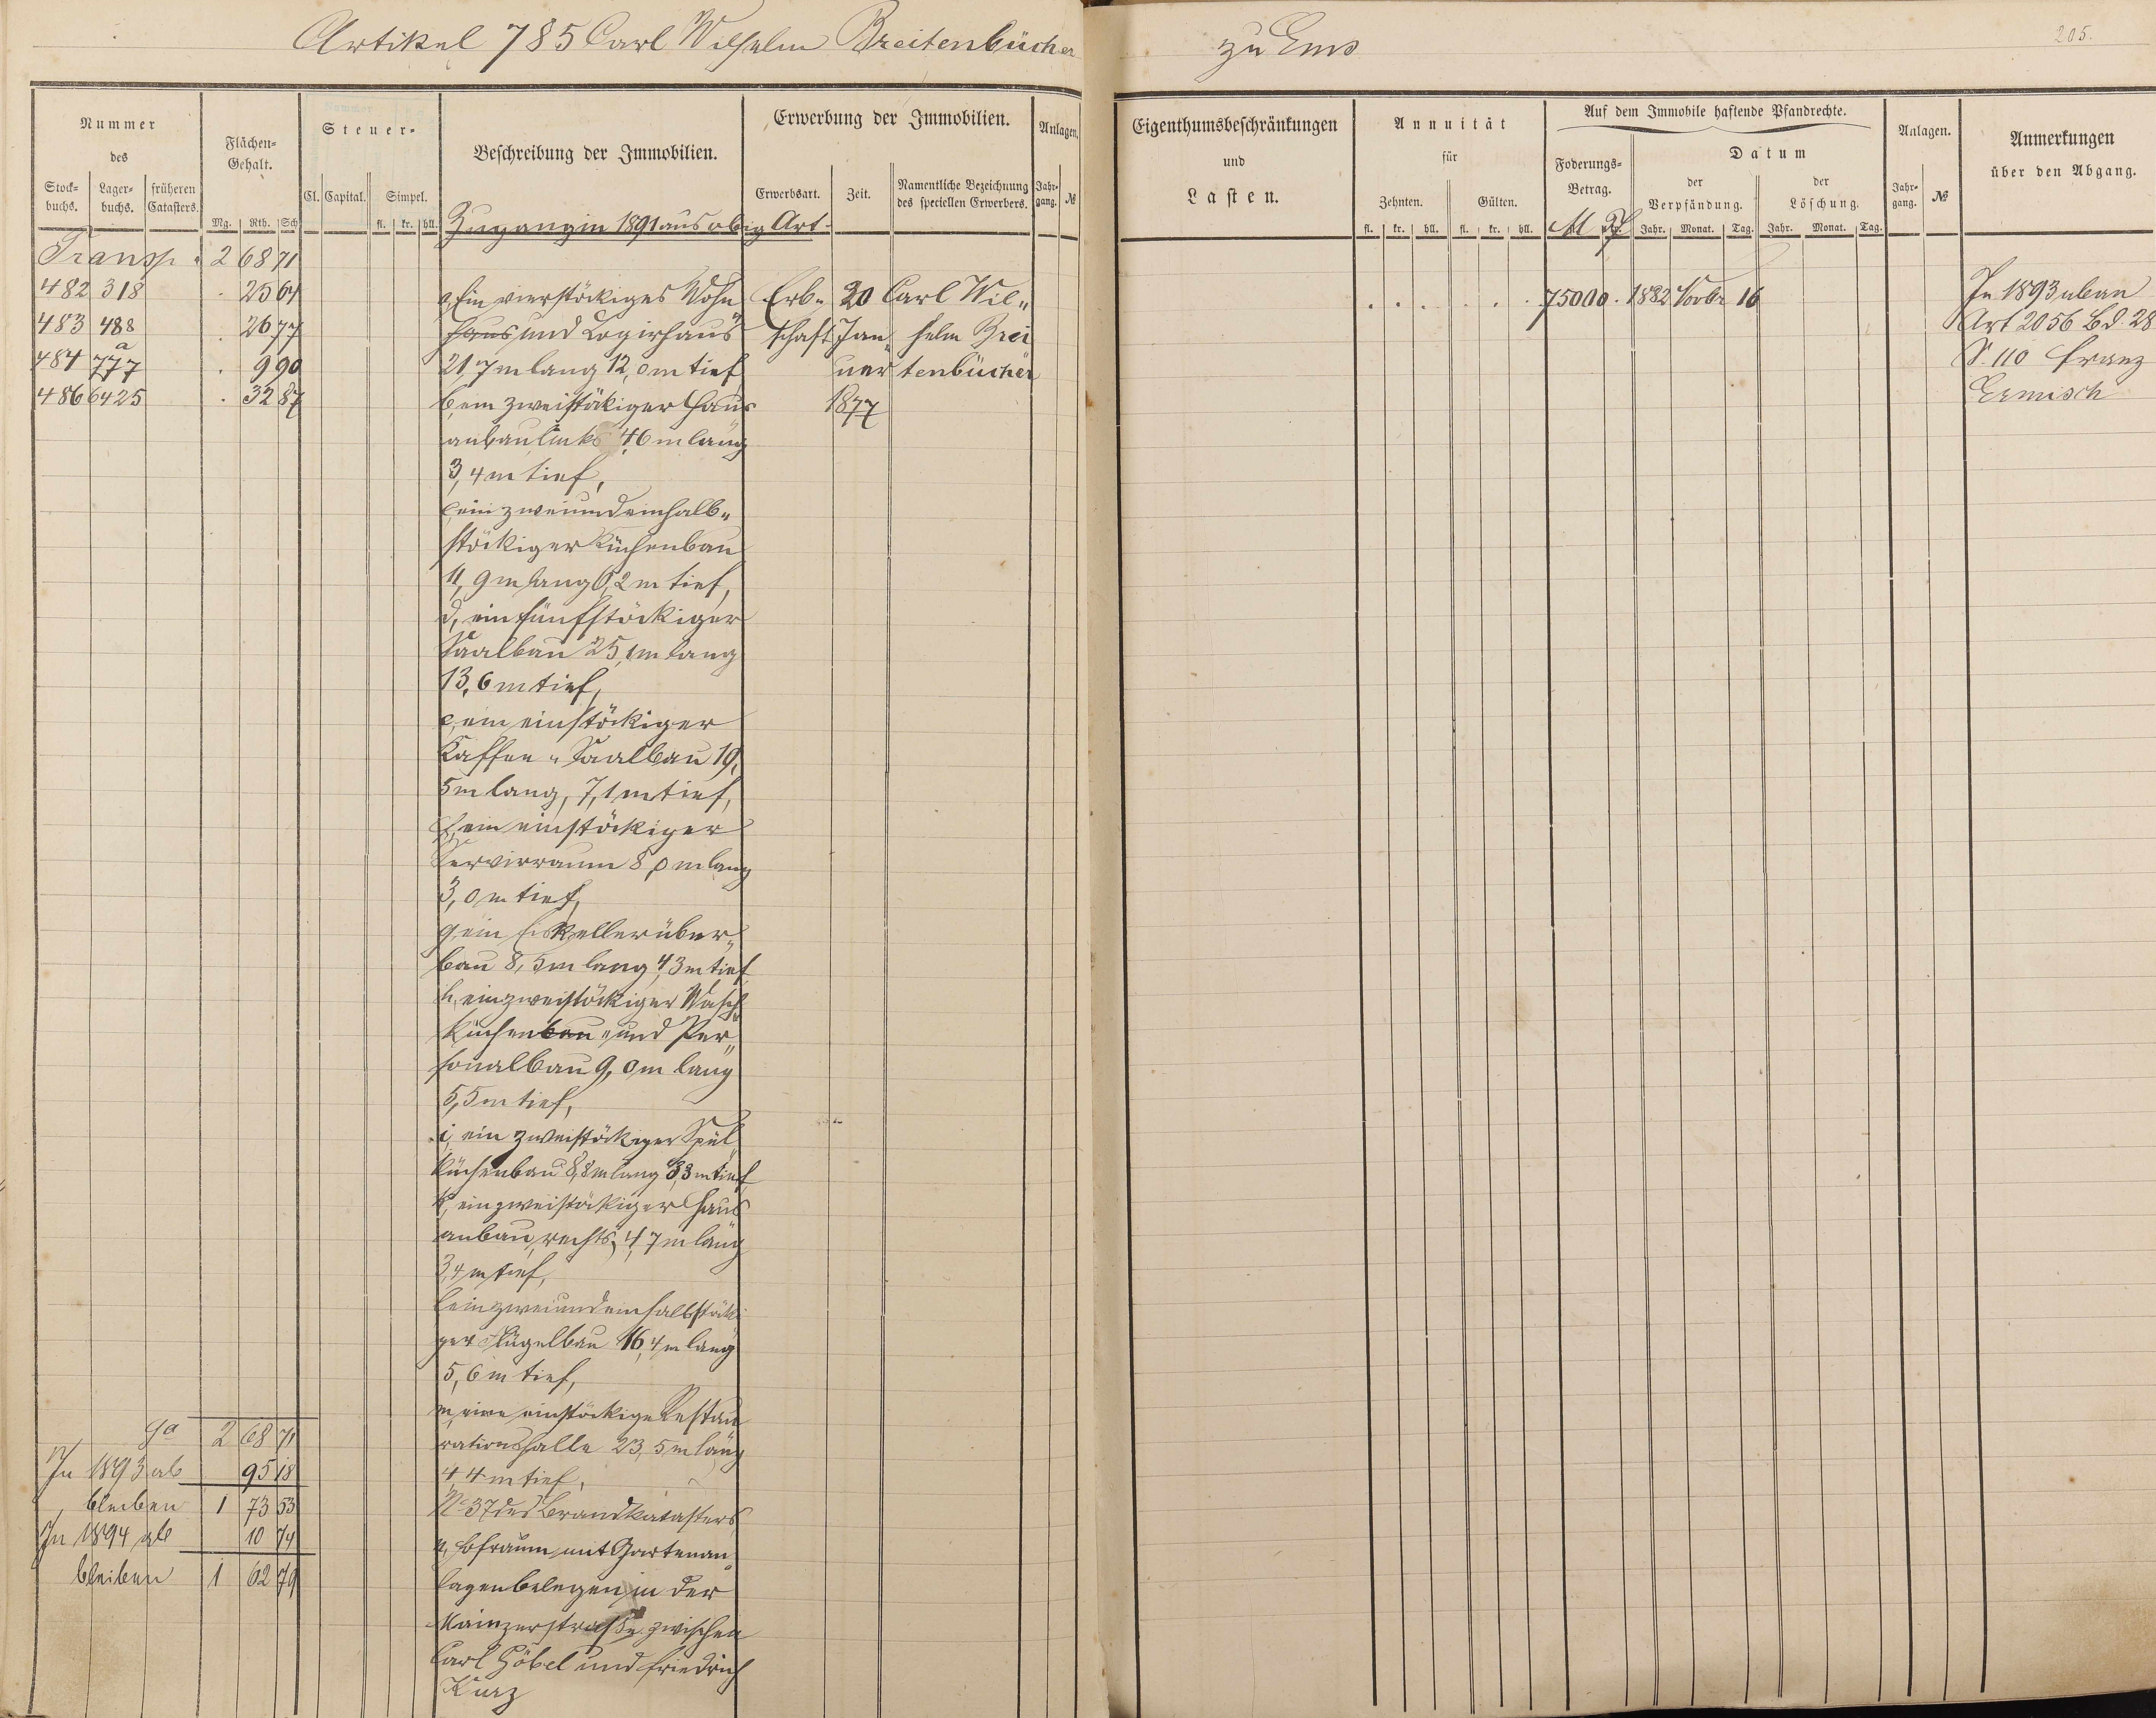 Artikel 785 Carl Wilhelm Breitenbücher
zu Ems
205.
Nummer
des
Stock-
buchs.
Lager-
buchs.
früheren
Catasters.
Flächen-
Gehalt.
Mg. Rth. Sch
Steuer-
Nummer
Cl. Capital. Simpel.
fl. kr. hll.
Beschreibung der Immobilien.
Zugang in 1891 aus obig Art.
Erwerbung der Immobilien.
Erwerbsart. Zeit.
Namentliche Bezeichnung
des speciellen Erwerbers.
Anlagen.
Jahr-
gang. №
Eigenthumsbeschränkungen
und
Lasten.
Annuität
für
Zehnten. Gülten.
fl. kr. hll. fl. kr. hll.
Auf dem Immobile haftende Pfandrechte.
Foderungs-
Betrag.
M Pf
Datum
der
Verpfändung.
der
Löschung.
Jahr. Monat. Tag. Jahr. Monat. Tag.
Anlagen.
Jahr-
gang. №
Anmerkungen
über den Abgang.
Transp. 2 68 71
482 318 . 25 64
483 488 . 26 77
a
484 777 . 9 90
486 6425 . 32 87
a, Ein vierstöckiges Wohn
haus und Logirhaus
21,7 m lang 12,0 m tief
b, ein zweistökiger Haus
anbau links 4,6 m lang
3,4 m tief,
c, ein zweiundeinhalb-
stöckiger Küchenbau
11,9 m lang 6,2 m tief,
d, ein fünfstöckiger
Saalbau 25,1 m lang
13,6 m tief,
e, ein einstöckiger
Kaffee- Saalbau 19,
5 m lang, 7,1 m tief,
f, ein einstöckiger
Servirraum 8,0 m lang
3,0 m tief,
g, ein Eiskellerüber-
bau 8,5 m lang 4,3 m tief
h, ein zweistöckiger Wasch
küchenbau- und Per-
sonalbau 9,0 m lang
5,5 m tief,
i, ein zweistöckiger Spül
küchenbau 8,8 m lang 3,3 m tief
k, ein zweistöckiger Haus
anbau, rechts, 4,7 m lang
3,4 m tief,
l, ein zweiundeinhalbstöcki-
ger Flügelbau 16,4 m lang
5,6 m tief,
m, eine einstöckige Restau
rationshalle 23,5 m lang
4,4 m tief,
No 37 des Brandkatasters
n, Hofraum mit Gartenan-
lagen belegen in der
Mainzerstraße zwischen
Carl Göbel und Friedrich
Kurz
Erb-
schaft
20
Jan-
uar
1877
Carl Wil-
helm Brei
tenbücher
75000 . 1882 Novbr 16
In 1893 aban
Art 2056 Bd. 28
S. 110 Franz
Ermisch
2 68 71
In 1893 ab 95 18
bleiben 1 73 53
In 1894 ab 10 74
bleiben 1 62 79